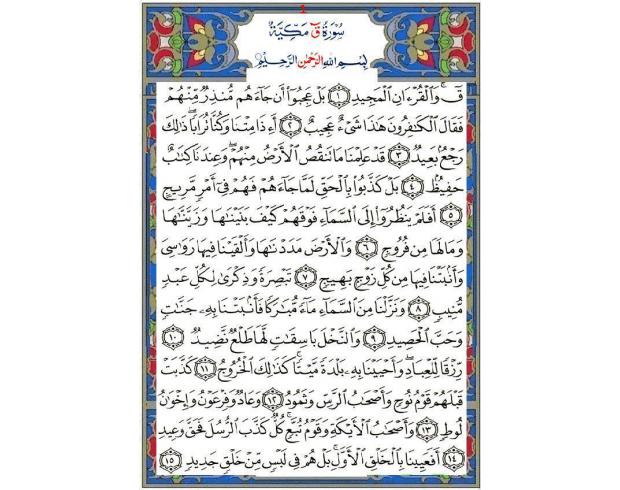 1
سُورَةُ قٓ مَكِّيَّةٌ
بِسْمِ اللهِ الرَّحْمٰنِ الرَّحِيمِ
قٓ ۚ وَٱلْقُرْءَانِ ٱلْمَجِيدِ ١ بَلْ عَجِبُوٓا۟ أَن جَآءَهُم مُّنذِرٌ مِّنْهُمْ
فَقَالَ ٱلْكَٰفِرُونَ هَٰذَا شَىْءٌ عَجِيبٌ ٢ أَءِذَا مِتْنَا وَكُنَّا تُرَابًا ۖ ذَٰلِكَ
رَجْعٌۢ بَعِيدٌ ٣ قَدْ عَلِمْنَا مَا تَنقُصُ ٱلْأَرْضُ مِنْهُمْ ۖ وَعِندَنَا كِتَٰبٌ
حَفِيظٌۢ ٤ بَلْ كَذَّبُوا۟ بِٱلْحَقِّ لَمَّا جَآءَهُمْ فَهُمْ فِىٓ أَمْرٍ مَّرِيجٍ
٥ أَفَلَمْ يَنظُرُوٓا۟ إِلَى ٱلسَّمَآءِ فَوْقَهُمْ كَيْفَ بَنَيْنَٰهَا وَزَيَّنَّٰهَا
وَمَا لَهَا مِن فُرُوجٍ ٦ وَٱلْأَرْضَ مَدَدْنَٰهَا وَأَلْقَيْنَا فِيهَا رَوَٰسِىَ
وَأَنۢبَتْنَا فِيهَا مِن كُلِّ زَوْجٍۭ بَهِيجٍ ٧ تَبْصِرَةً وَذِكْرَىٰ لِكُلِّ عَبْدٍ
مُّنِيبٍ ٨ وَنَزَّلْنَا مِنَ ٱلسَّمَآءِ مَآءً مُّبَٰرَكًا فَأَنۢبَتْنَا بِهِۦ جَنَّٰتٍ
وَحَبَّ ٱلْحَصِيدِ ٩ وَٱلنَّخْلَ بَاسِقَٰتٍ لَّهَا طَلْعٌ نَّضِيدٌ ١٠
رِّزْقًا لِّلْعِبَادِ ۖ وَأَحْيَيْنَا بِهِۦ بَلْدَةً مَّيْتًا ۚ كَذَٰلِكَ ٱلْخُرُوجُ ١١ كَذَّبَتْ
قَبْلَهُمْ قَوْمُ نُوحٍ وَأَصْحَٰبُ ٱلرَّسِّ وَثَمُودُ ١٢ وَعَادٌ وَفِرْعَوْنُ وَإِخْوَٰنُ
لُوطٍ ١٣ وَأَصْحَٰبُ ٱلْأَيْكَةِ وَقَوْمُ تُبَّعٍ ۚ كُلٌّ كَذَّبَ ٱلرُّسُلَ فَحَقَّ وَعِيدِ
١٤ أَفَعَيِينَا بِٱلْخَلْقِ ٱلْأَوَّلِ ۚ بَلْ هُمْ فِى لَبْسٍ مِّنْ خَلْقٍ جَدِيدٍ ١٥